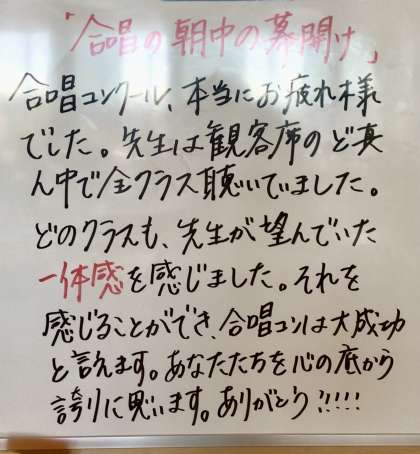 「合唱の朝中の幕開け」
合唱コンクール、本当にお疲れ様
でした。先生は観客席のど真
ん中で全クラス聴いていました。
どのクラスも、先生が望んでいた
一体感を感じました。それを
感じることができ、合唱コンは大成功
と言えます。あなたたちを心の底から
誇りに思います。ありがとう!!!!!